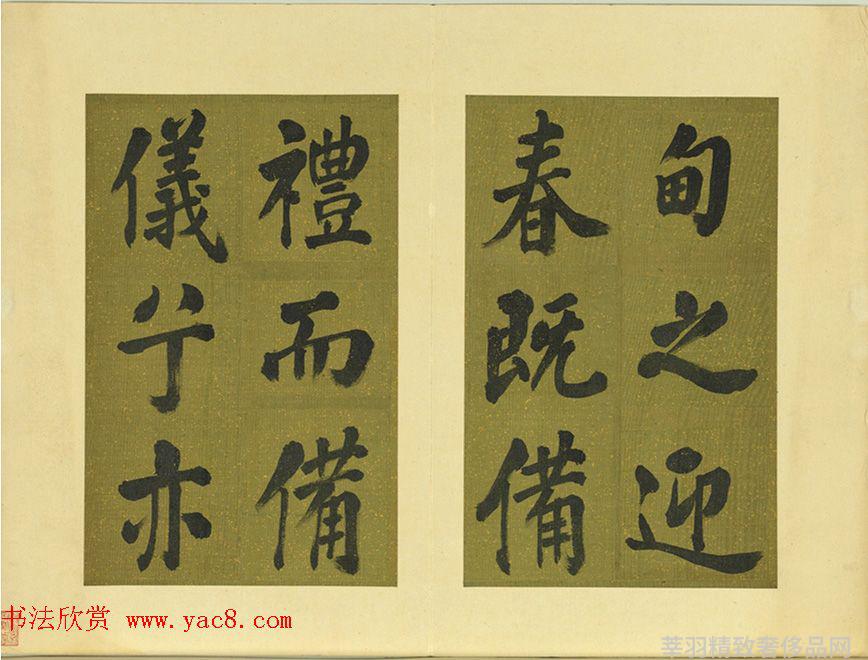 甸之迎
春既備
禮而備
儀兮亦
书法欣赏 www.yac8.com
莘羽精致奢侈品网